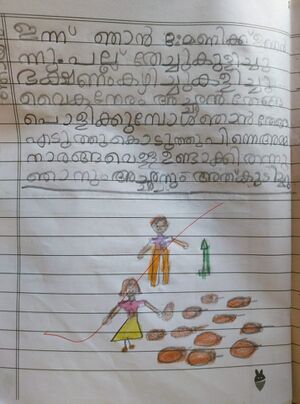 ഇന്ന് ഞാൻ 8 മണിക്ക് ഉണർ
ന്നു. പല്ല് തേച്ചു കുളിച്ചു
ഭക്ഷണം കഴിച്ചു കളിച്ചു
വൈകുന്നേരം അച്ഛൻ തേങ്ങ
പൊളിക്കുമ്പോൾ ഞാൻ തേങ്ങ
എടുത്തു കൊടുത്തു പിന്നെ അമ്മ
നാരങ്ങ വെള്ളം ഉണ്ടാക്കി തന്നു
ഞാനും അച്ഛനും അത് കുടിച്ചു